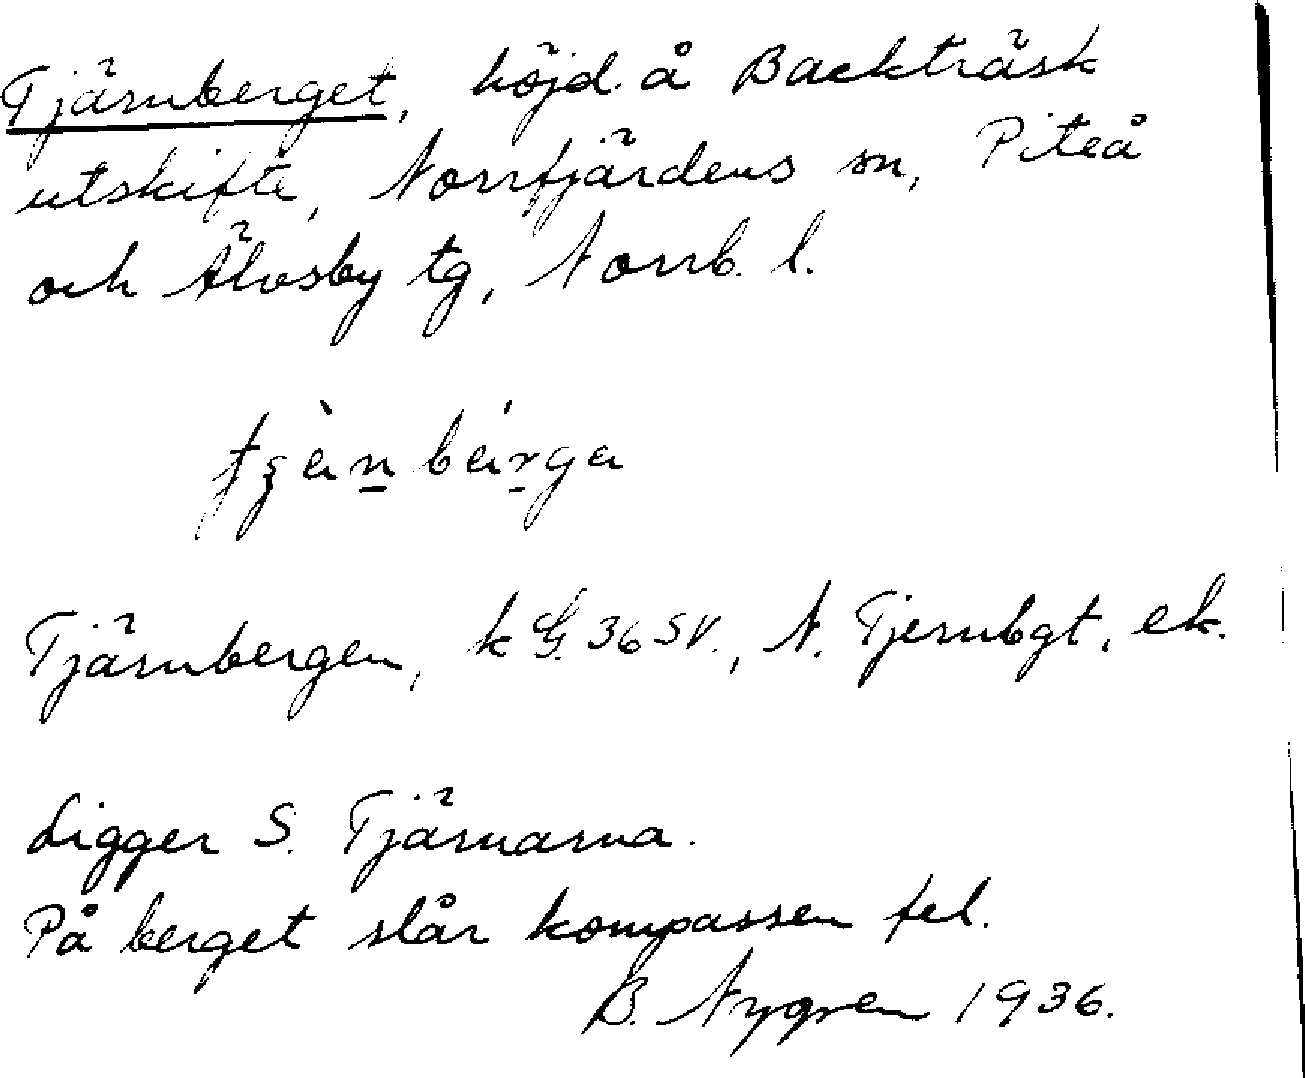 Tjärnberget, höjd å Backträsk
utskifte, Norrfjärdens sn, Piteå
och Älvsby tg, Norrb. l.
Tjärnbergen, k G. 36 SV., N. Tjernbgt, ek.
Ligger S. Tjärnarna.
På berget slår kompassen fel.
B. Nygren 1936.